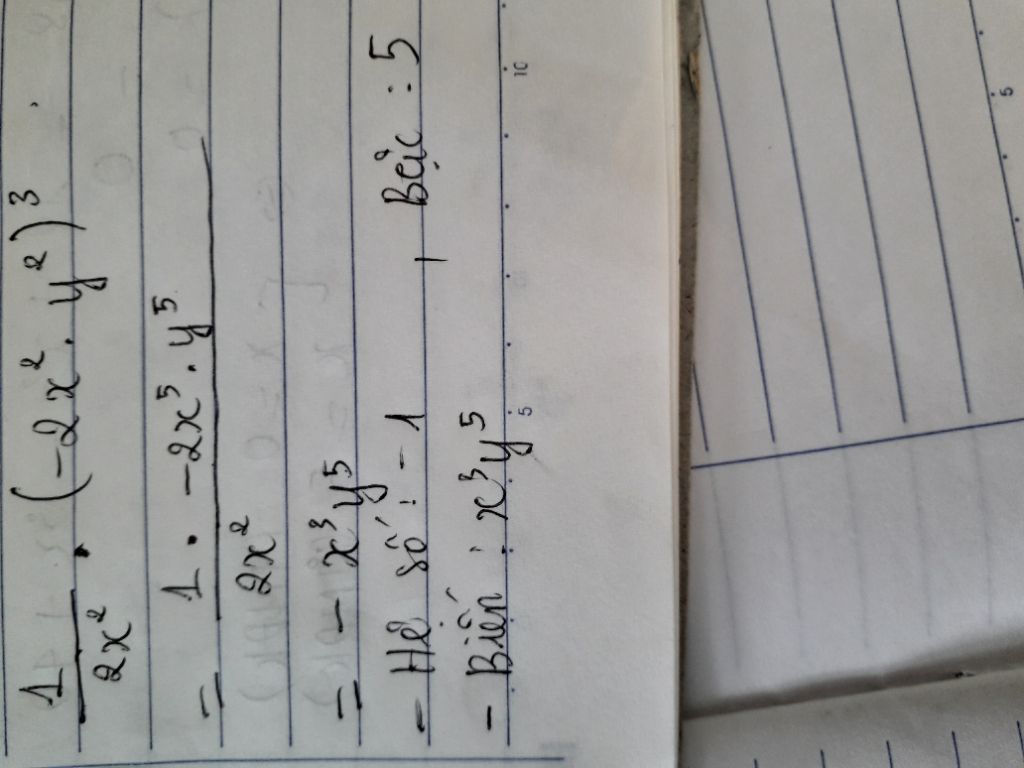 1/2x² . (-2x² . y²)³
= 1 . -2x⁵ . y⁵ / 2x²
= - x³y⁵
- Hệ số: - 1 , Bậc : 5
- Biến : x³y⁵
10
5
5